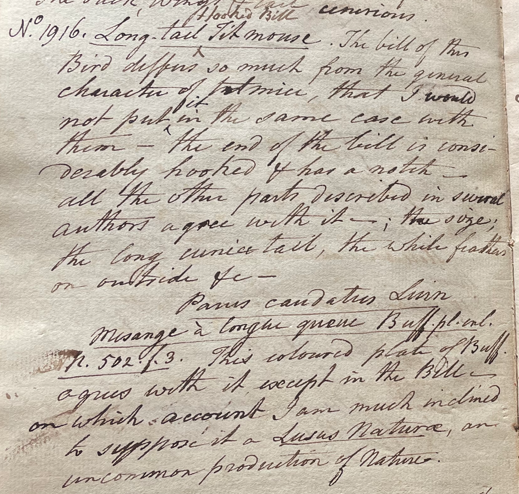 The back, wings & tail cenerious.
Hooked Bill
No. 1916. Long-tail Titmouse. The bill of this
Bird differs so much from the general
character of titmice, that I would
not put it in the same case with
them — the end of the bill is consi-
derably hooked & has a notch —
all the other parts described in several
authors agree with it — ; the size,
the long cuneic tail, the white feathers
on outside &c —
Parus caudatus Linn
Mesange à longue queue Buff. pl. enl.
n. 502. f. 3. This coloured plate of Buff.
agrees with it except in the Bill —
on which account I am much inclined
to suppose it a Lusus Naturæ, an
uncommon production of Nature.